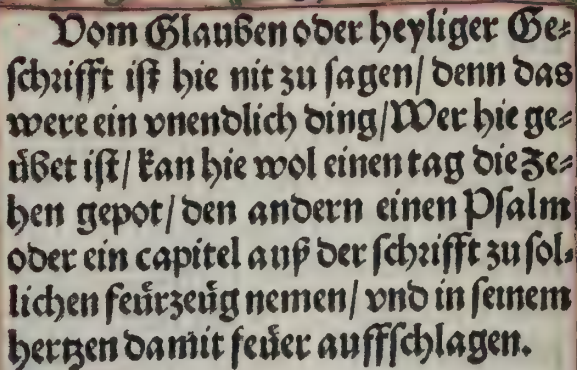 Vom Glauben oder heyliger Ge⸗
schrifft ist hie nit zu sagen/ denn das
were ein vnendlich ding/Wer hie ge⸗
uͤbet ist/ kan hie wol einen tag die ze⸗
hen gepot/ den andern einen Psalm
oder ein capitel auß der schrifft zu sol⸗
lichen feuͤrzeuͤg nemen/ vnd in seinem
hertzen damit feuͤer auffschlagen.